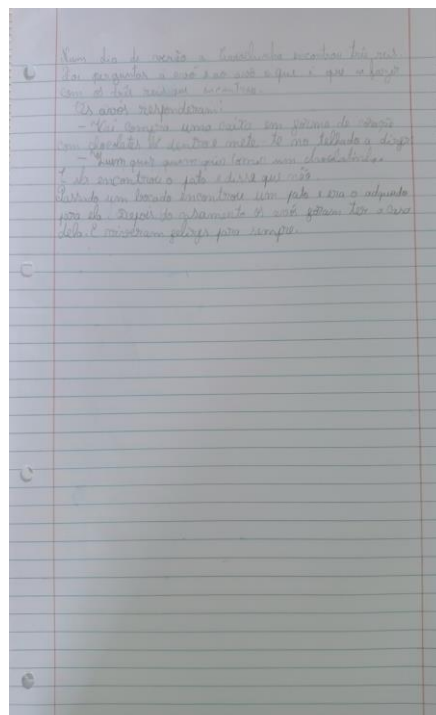 Num dia de verão a Carochinha encontrou três reis
Foi perguntar à avó e ao avô o que é que ia fazer
com os três reis que encontrou.
Os avós responderam:
– Vai compra uma caixa em forma de coração
com chocolates lá dentro mete-te no telhado a dizer
– Quem quer quem quer comer um chocolatinho
E ela encontrou o pato e disse que não.
Passado um bocado encontrou um pato e era o adequado
para ela. Depois do casamento os avós foram ter a casa
dela. E viveram felizes para sempre.